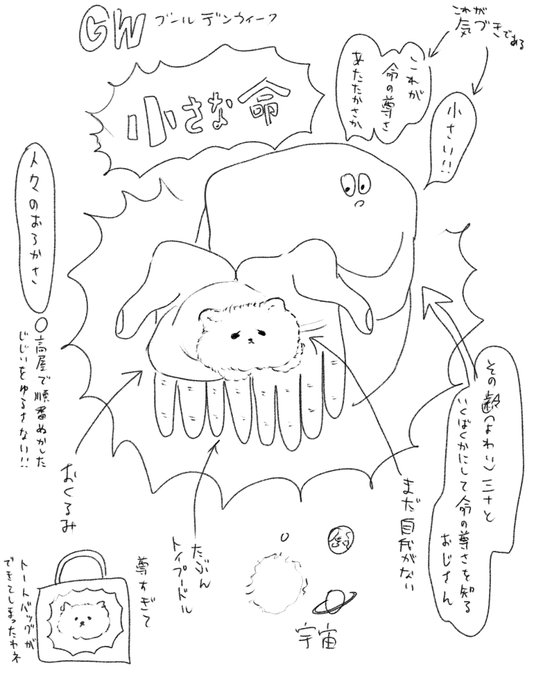 GW
プールデンウィーク
これが
気づきである
小さな命
これが
命の尊さ
あたたかさか
小さい!!
人々のおろかさ
○高屋で順番ぬかした
じじいをゆるさない!!
その齢(よわい)三十と
いくばくかにして命の尊さを知る
おじさん
おくるみ
たぶん
トイプードル
まだ自我がない
尊すぎて
トートバッグが
できてしまったわネ
宇宙